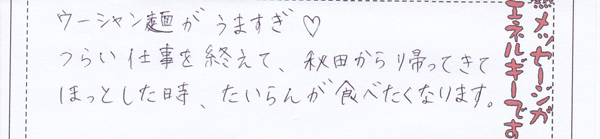 ウーシャン麺がうますぎ♡
つらい仕事を終えて、秋田から帰ってきて
ほっとした時、たいらんが食べたくなります。
メッセージが
エネルギーです